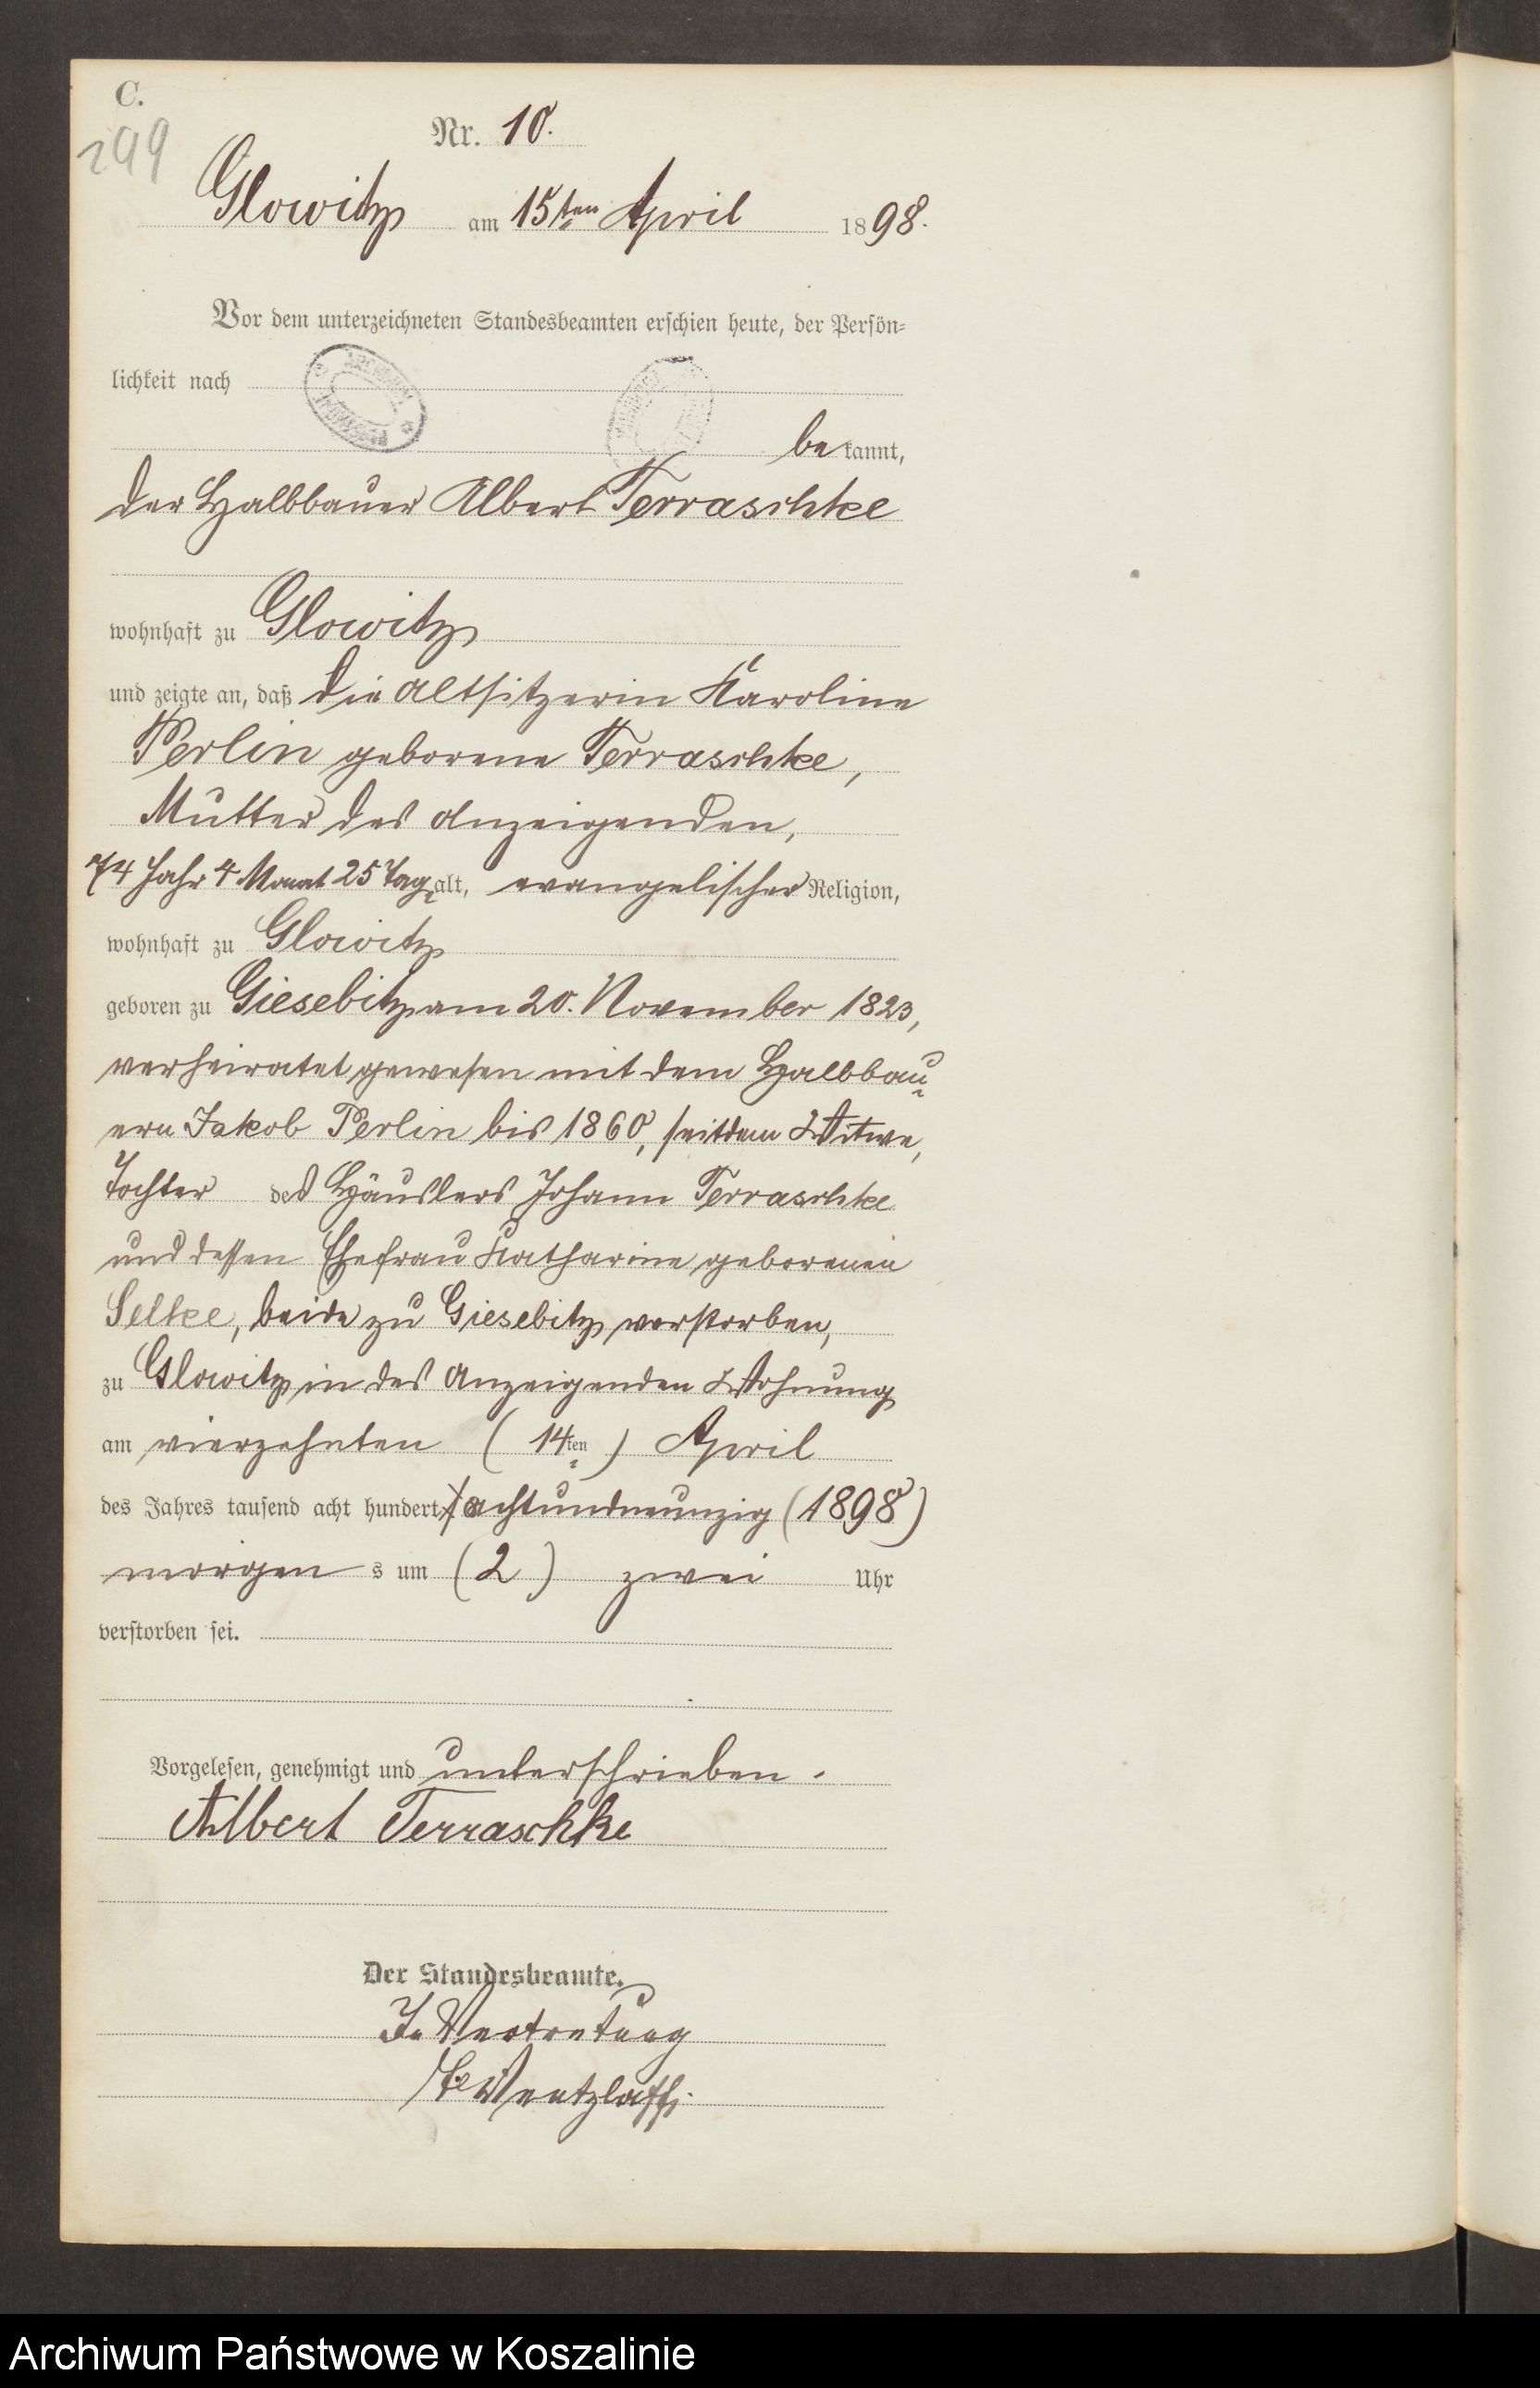 C.
299
Nr. 10.
Glowitz am 15ten April 1898.
Vor dem unterzeichneten Standesbeamten erschien heute, der Persön-
lichkeit nach
bekannt,
der Halbbauer Albert Terraschke
wohnhaft zu Glowitz
und zeigte an, daß die Altsitzerin Karoline
Perlin geborene Terraschke,
Mutter des Anzeigenden,
74 Jahr 4 Monat 25 Tag alt, evangelischer Religion,
wohnhaft zu Glowitz
geboren zu Giesebitz am 20. November 1823,
verheiratet gewesen mit dem Halbbau-
ern Jakob Perlin bis 1860, seitdem Witwe,
Tochter des Häuslers Johann Terraschke
und dessen Ehefrau Katharine geborenen
Selke, beide zu Giesebitz verstorben,
zu Glowitz in des Anzeigenden Wohnung
am vierzehnten (14ten) April
des Jahres tausend acht hundert achtundneunzig (1898)
morgens um (2) zwei Uhr
verstorben sei.
Vorgelesen, genehmigt und unterschrieben.
Albert Terraschke
Der Standesbeamte.
In Vertretung
Wentzlaff.
Archiwum Państwowe w Koszalinie